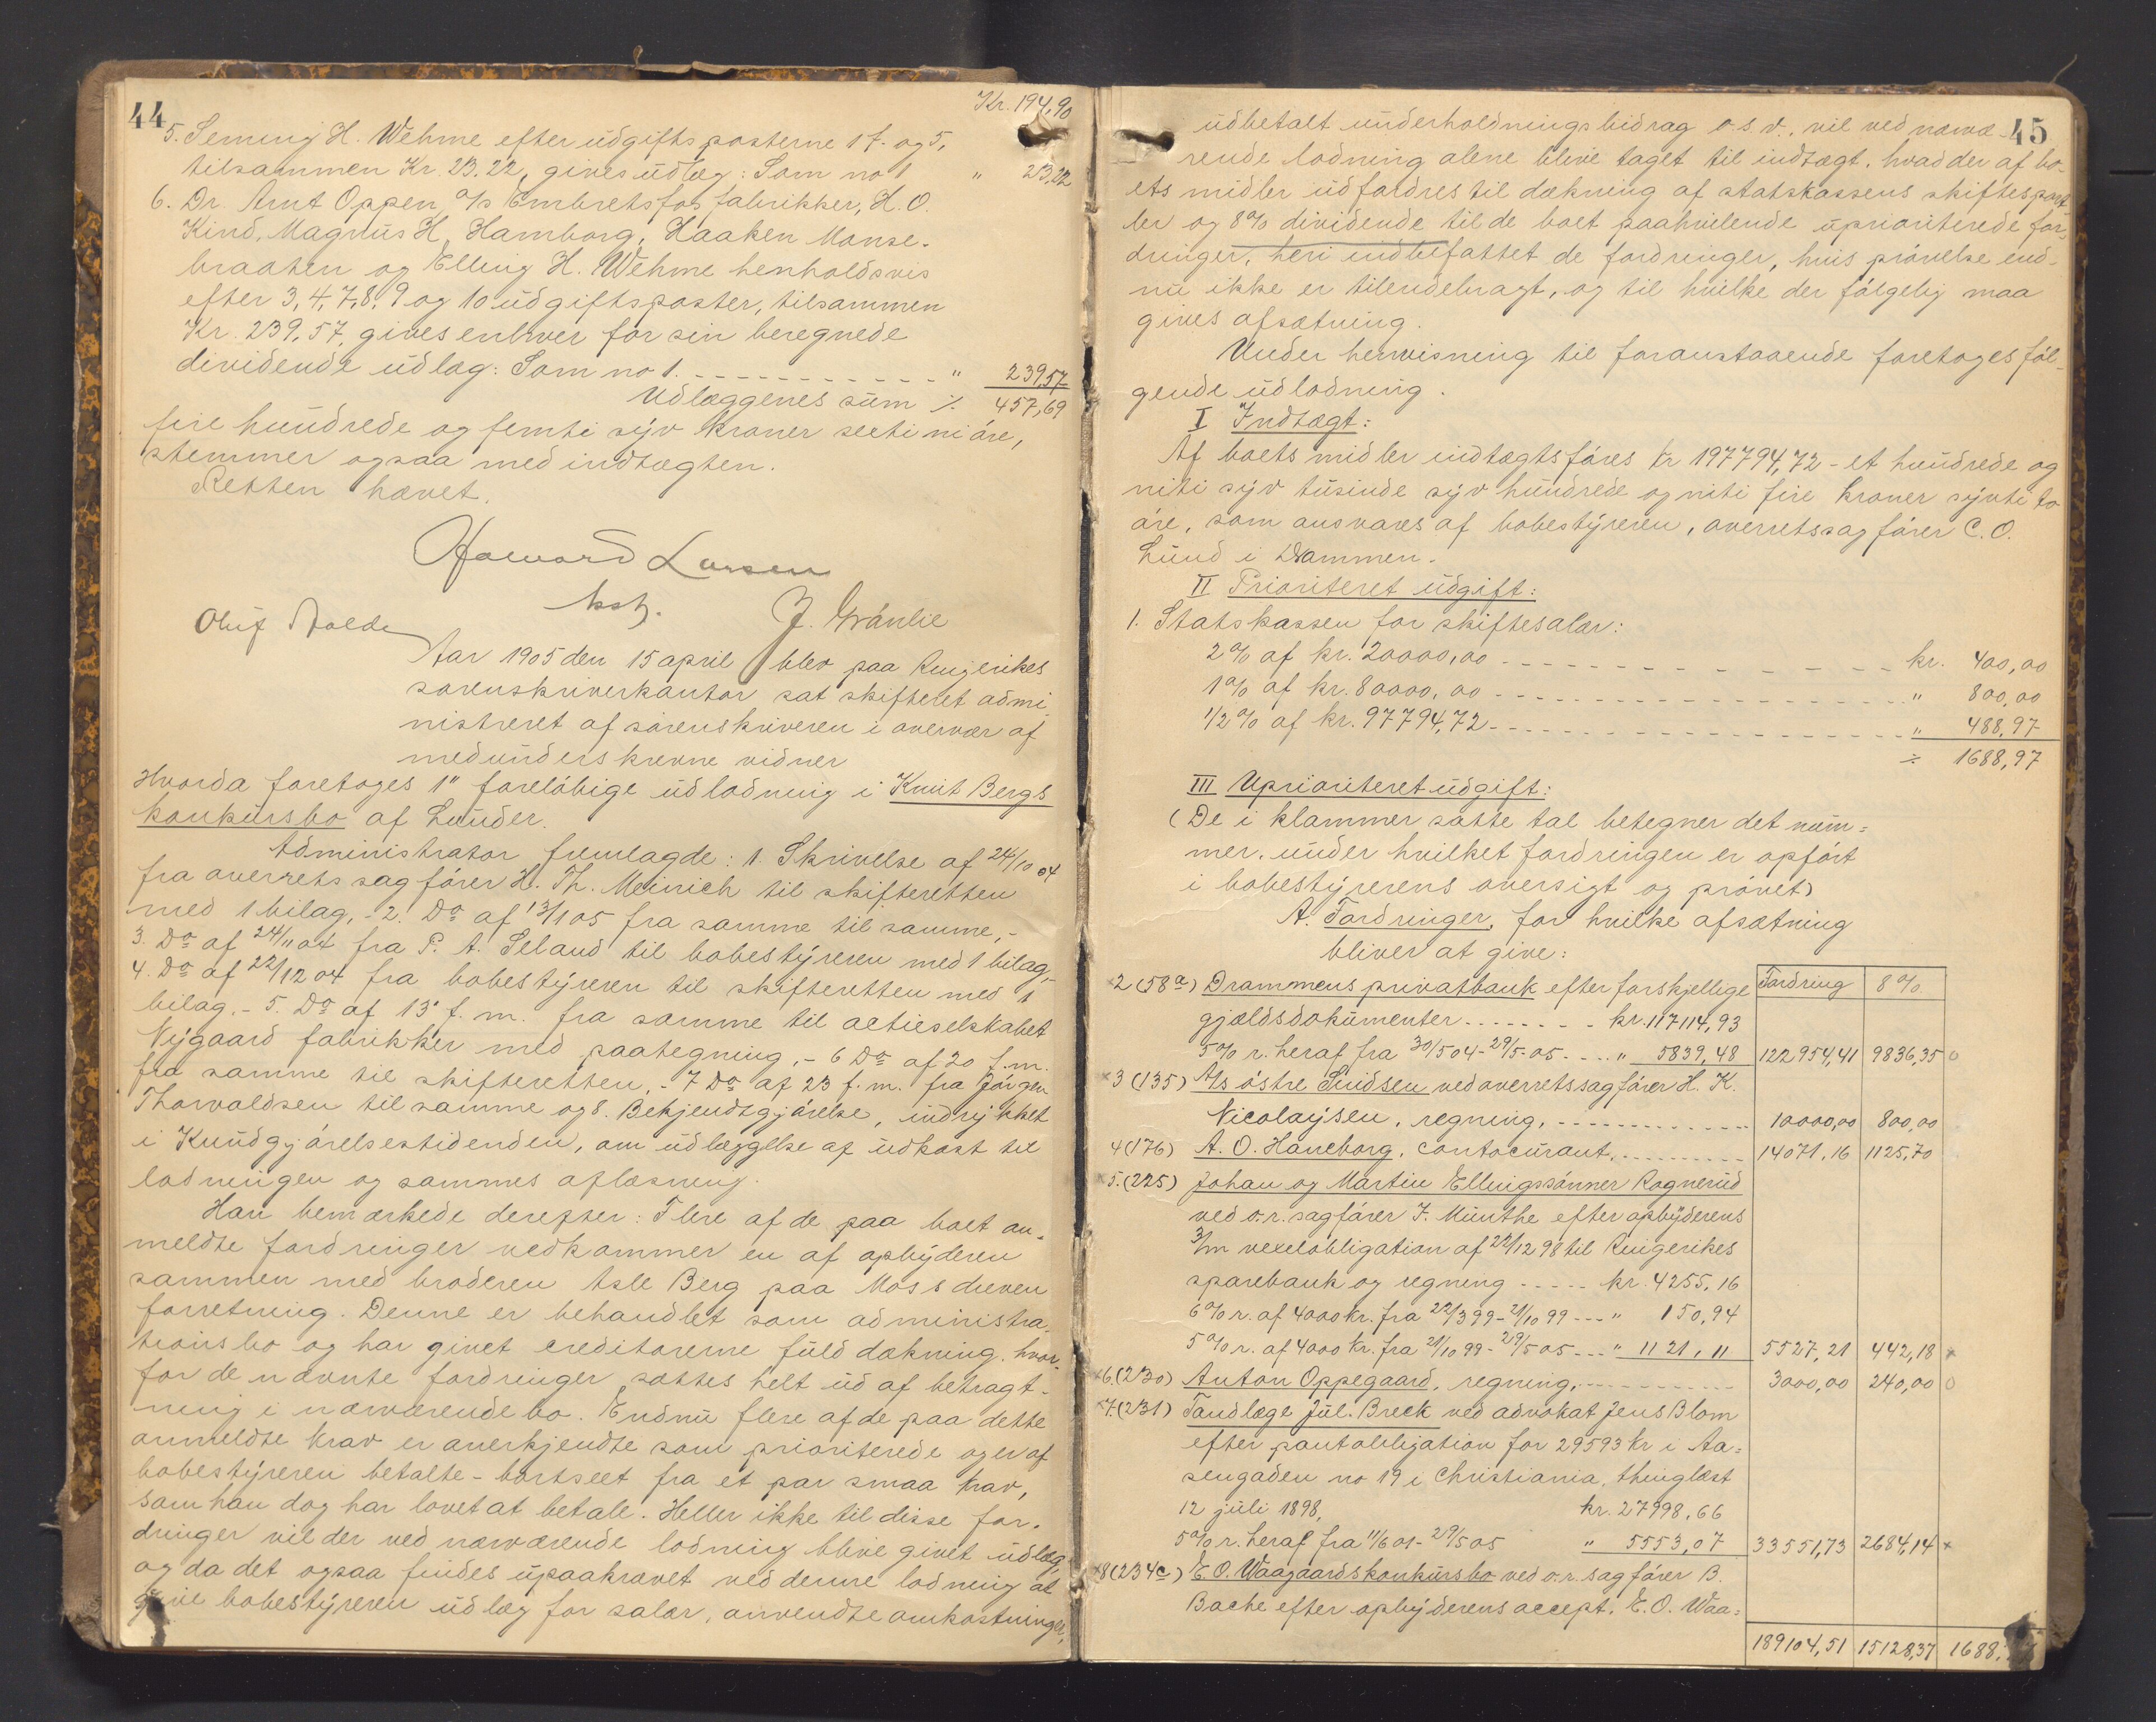 44
Kr. 194,90
5. Seming H. Wehme efter udgiftsposterne 1 f. og 5,
tilsammen Kr. 23.22, gives udlæg: Som no 1 " 23,22
6. Dr. Arnt Oppen, A/s Embretsfos fabrikker, H. O.
Kind, Magnus H. Hamborg, Haaken Monse-
braaten og Elling H. Wehme henholdsvis
efter 3, 4, 7, 8, 9 og 10 udgiftsposter, tilsammen
Kr. 239,57, gives enhver for sin beregnede
dividende udlæg: Som no 1. - - - - - - - - - - " 239,57
Udlæggenes sum ÷ 457,69
fire hundrede og femti syv kroner sexti ni øre,
stemmer ogsaa med indtægten.
Retten hævet.
Havard Larsen
kst.
Oluf Rolde
J. Grånlie
Aar 1905 den 15 april blev paa Ringerikes
sorenskriverkontor sat skifteret admi-
nistreret af sorenskriveren i overvær af
medunderskrevne vidner
Hvorda foretoges 1" foreløbige udlodning i Knut Bergs
konkursbo af Lunder.
Administrator fremlagde: 1. Skrivelse af 24/10 04
fra overretssagfører H. Th. Meinich til skifteretten
med 1 bilag, - 2. Do af 13/1 05 fra samme til samme, -
3. Do af 24/11 04 fra P. A. Seland til bobestyreren med 1 bilag, -
4. Do af 22/12 04 fra bobestyreren til skifteretten med 1
bilag, - 5. Do af 13' f. m. fra samme til actieselskabet
Nygaard fabrikker med paategning, - 6 Do af 20 f.m.
fra samme til skifteretten, - 7 Do af 23 f. m. fra Jørgen
Thorvaldsen til samme og 8. Bekjendtgjørelse, indrykket
i Kundgjørelsestidenden, om udlæggelse af udkast til
lodningen og sammes aflæsning.
Han bemærkede derefter: Flere af de paa boet an-
meldte fordringer vedkommer en af opbyderen
sammen med broderen Asle Berg paa Moss dreven
forretning. Denne er behandlet som administra-
tionsbo og har givet creditorerne fuld dækning, hvor-
for de nævnte fordringer sættes helt ud af betragt-
ning i nærværende bo. Endnu flere af de paa dette
anmeldte krav er anerkjendte som prioriterede og er af
bobestyreren betalte - bortseet fra et par smaa krav,
som han dog har lovet at betale. Heller ikke til disse for-
dringer vil der ved nærværende lodning blive givet udlæg,
og da det ogsaa findes upaakrævet ved denne lodning at
give bobestyreren udlæg for salær, anvendte omkostninger,
45
udbetalt underholdningsbidrag o. s. v., vil ved nærvæ-
rende lodning alene blive taget til indtægt, hvad der af bo-
ets midler udfordres til dækning af statskassens skiftespart-
ler og 8% dividende til de boet paahvilende uprioriterede for-
dringer, heri indbefattet de fordringer, hvis prøvelse end-
nu ikke er tilendebragt, og til hvilke der følgelig maa
gives afsætning.
Under henvisning til foranstaaende foretoges føl-
gende udlodning.
I Indtægt:
Af boets midler indtægtsføres kr 197794,72 - et hundrede og
niti syv tusinde syv hundrede og niti fire kroner sytti to
øre, som ansvares af bobestyreren, overretssagfører C. O.
Lund i Drammen.
II Prioriteret udgift:
1. Statskassen for skiftesalær:
2% af kr. 20000,00 - - - - - - - - - - kr. 400,00
1% af kr. 80000,00 - - - - - - - - - - " 800,00
1/2% af kr. 97794,72 - - - - - - - - - - " 488,97
÷ 1688,97
III Uprioriteret udgift:
(De i klammer satte tal betegner det num-
mer, under hvilket fordringen er opført
i bobestyrerens oversigt og prøvet)
A. Fordringer, for hvilke afsætning
bliver at give:
Fordring 8%
×2 (58a) Drammens privatbank efter forskjellige
gjældsdokumenter - - - - - - - kr. 117114,93
5% r. heraf fra 30/5 04 - 29/5 05 - - - - " 5839,48 122954,41 9836,35 o
×3 (135) A/s østre Smidsen ved overretssagfører H. K.
Nicolaysen, regning, - - - - - - - - 10000,00 800,00
4 (176) A. O. Haneborg, contocurant, - - - - - - - - 14071,16 1125,70
×5. (225) Johan og Martin Ellingssønner Rognerud
ved o.r.sagfører F. Münthe efter opbyderens
3/m vexelobligation af 22/12 98 til Ringerikes
sparebank og regning - - - - - kr. 4255,16
6% r. af 4000 kr. fra 22/3 99 - 21/10 99 - - - " 150,94
5% r. af 4000 kr. fra 21/10 99 - 29/5 05 - - - " 1121,11 5527,21 442,18 ×
×6. (230) Anton Oppegaard, regning, - - - - - - - - 3000,00 240,00 o
×7. (231) Tandlæge Jul. Breck ved advokat Jens Blom
efter pantobligation for 29593 kr i Aa-
sengaden no 19 i Christiania, thinglæst
12 juli 1898, kr. 27998,66
5% r. heraf fra 11/6 01 - 29/5 05 " 5553,07 33551,73 2684,14 ×
×8 (234c) E. O. Waagaards konkursbo ved o.r.sagfører B.
Bache efter opbyderens accept, E. O. Waa-
189104,51 15128,37 1688,